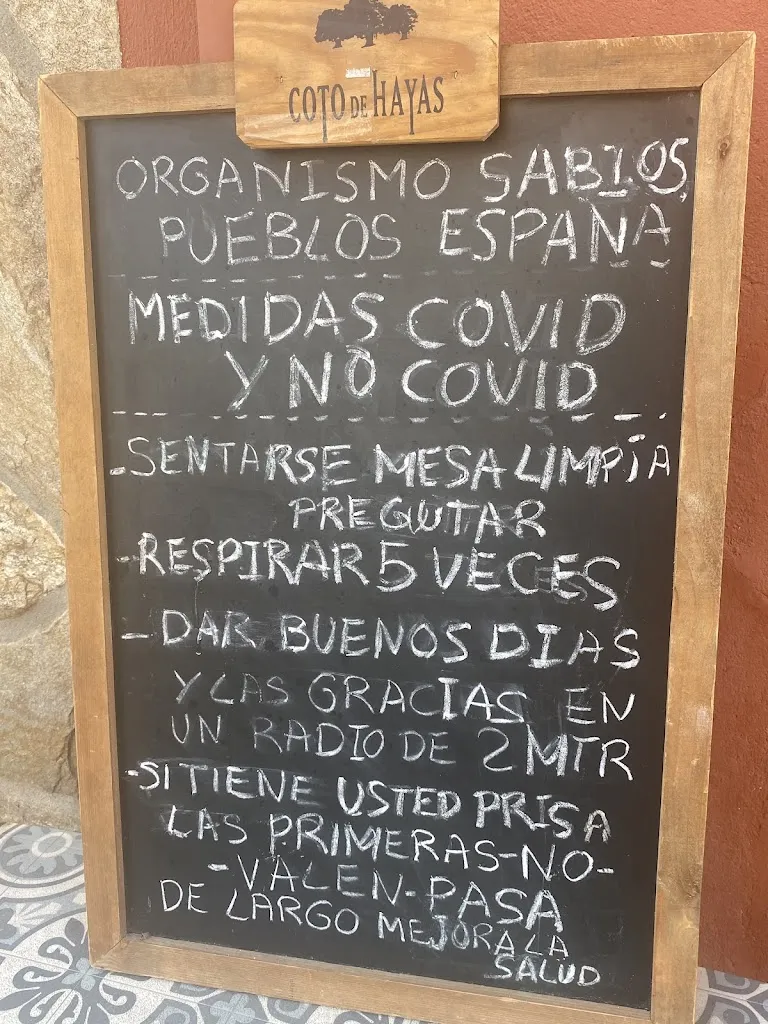 COTO DE HAYAS
ORGANISMO SABIOS,
PUEBLOS ESPAÑA
MEDIDAS COVID
Y NO COVID
-SENTARSE MESA LIMPIA
PREGUTAR
-RESPIRAR 5 VECES
- DAR BUENOS DIAS
Y LAS GRACIAS EN
UN RADIO DE 2 MTR
-SI TIENE USTED PRISA
LAS PRIMERAS-NO-
-VALEN-PASA
DE LARGO MEJORA LA
SALUD